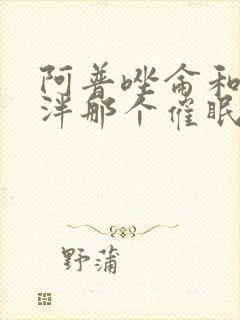 阿普唑侖和
泮那个催眠
野蒲